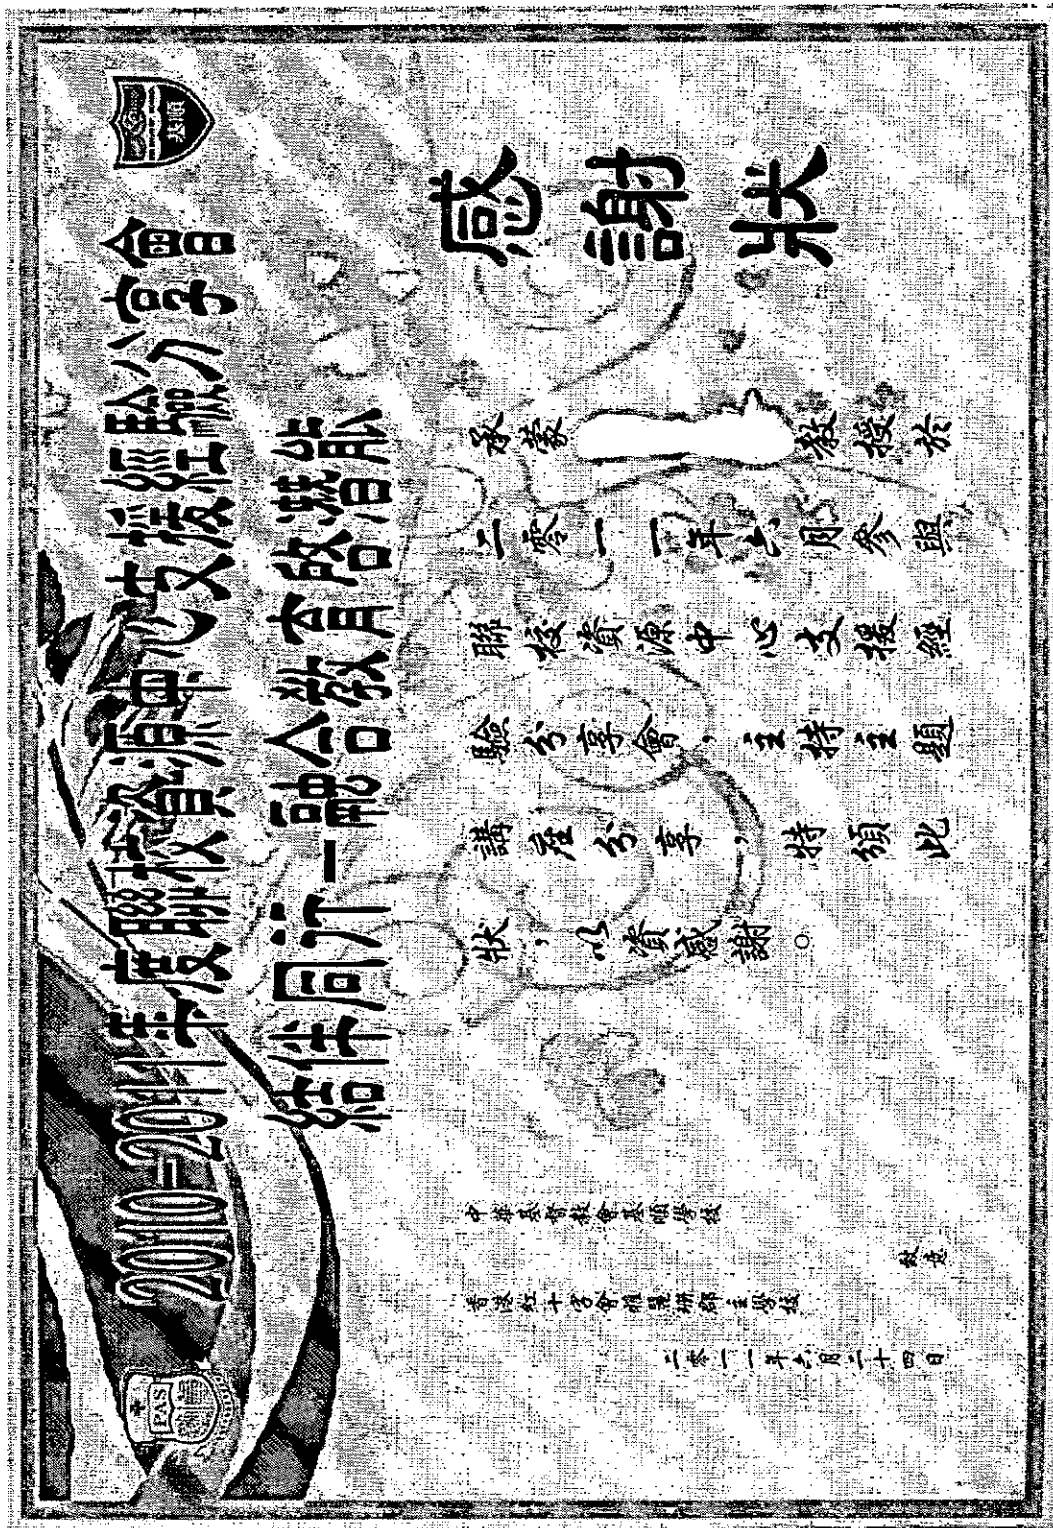 2010-2011年度聯校資源中心支援經驗分享會
結伴同行－融合教育啟潛能
感謝狀
承蒙 教授於
二零一一年六月參與
聯校資源中心支援經
驗分享會，主持主題
講座分享，特頒此
狀，以資感謝。
中華基督教會基順學校
致意
香港紅十字會雅麗珊郡主學校
二零一一年六月二十四日
PAS
基順